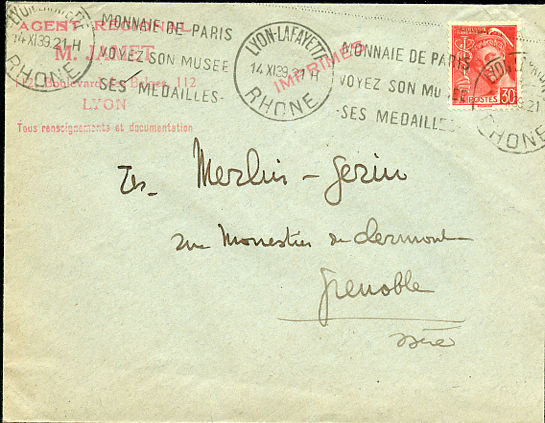 AGENT REGIONAL
M. JANET
Boulevard des Belges, 112
LYON
Tous renseignements et documentation
MONNAIE DE PARIS
VOYEZ SON MUSEE
SES MEDAILLES-
14 XI 39. 21 H
RHONE
LYON-LAFAYETTE
14 XI 39 21 H
RHONE
IMPRIMES
MONNAIE DE PARIS
VOYEZ SON MUSEE
-SES MEDAILLES
POSTES 30
RHONE
Ets Merlin-Gerin
rue Monestier de Clermont
Grenoble
Isère